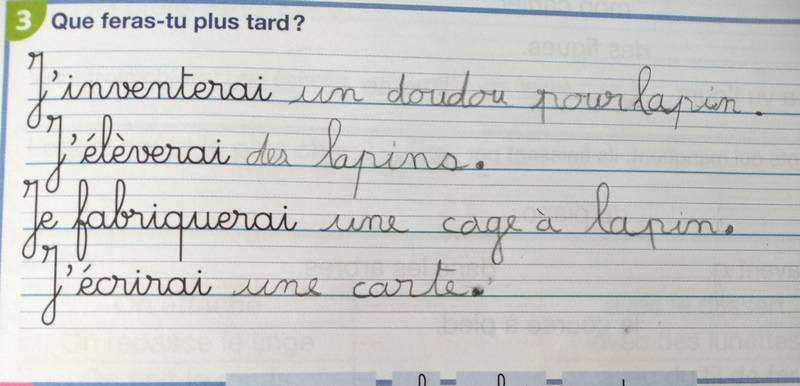 3 Que feras-tu plus tard ?
J'inventerai un doudou pour lapin.
J'élèverai des lapins.
Je fabriquerai une cage à lapin.
J'écrirai une carte.